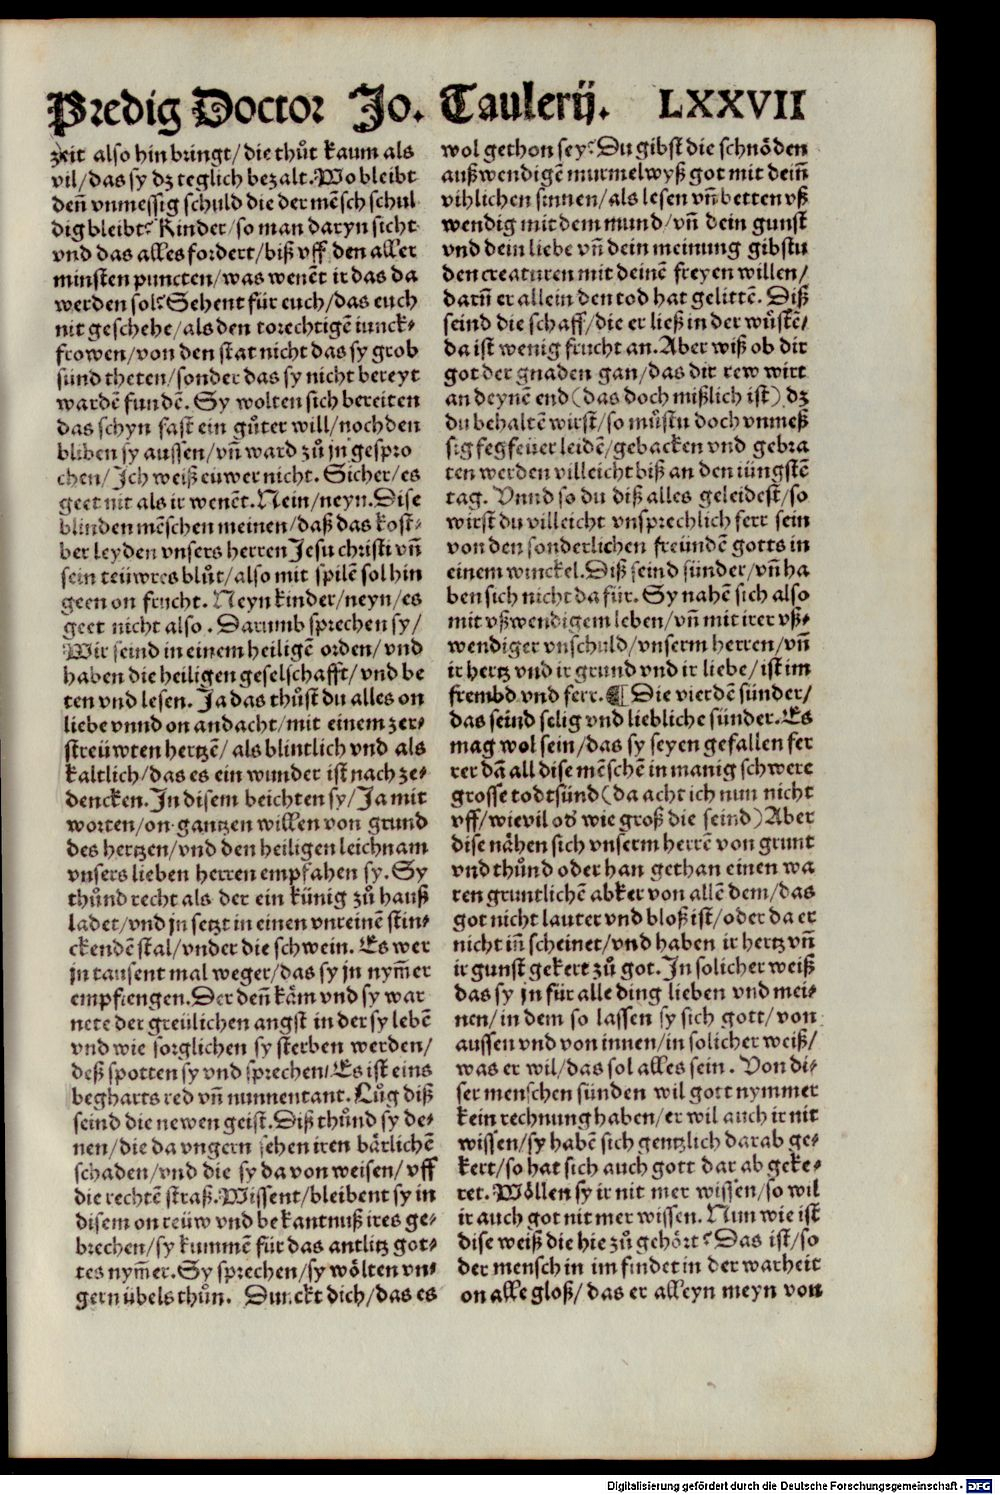 Predig Doctor Jo. Taulerij. LXXVII
zeit also hin bringt/ die thůt kaum als
vil/ das sy dz teglich bezalt. Wo bleibt
deñ vnmessig schuld die der mẽsch schul
dig bleibt? Kinder/ so man daryn sicht
vnd das alles fordert/ biß vff den aller
minsten puncten/ was wenẽt ir das da
werden sol? Sehent für euch/ das euch
nit geschehe/ als den torechtigẽ iunck⸗
frowen/ von den stat nicht das sy grob
sünd theten/ sonder das sy nicht bereyt
wardẽ fundẽ. Sy wolten sich bereiten
das schyn fast ein gůter will/ noch den
bliben sy aussen/ vñ ward zů jn gespro
chen/ Ich weiß euwer nicht. Sicher/ es
geet nit als ir wenẽt. Nein/ neyn. Dise
blinden mẽschen meinen/ daß das kost⸗
ber leyden vnsers herren Jesu christi vñ
sein teüwres blůt/ also mit spilẽ sol hin
geen on frucht. Neyn kinder/ neyn/ es
geet nicht also. Darumb sprechen sy/
Wir seind in einem heiligẽ orden/ vnd
haben die heiligen geselschafft/ vnd be
ten vnd lesen. Ja das thůst du alles on
liebe vnnd on andacht/ mit einem zer⸗
streüwten hertzẽ/ als blintlich vnd als
kaltlich/ das es ein wunder ist nach ze⸗
dencken. In disem beichten sy/ Ja mit
worten/ on gantzen willen von grund
des hertzen/ vnd den heiligen leichnam
vnsers lieben herren empfahen sy. Sy
thůnd recht als der ein künig zů hauß
ladet/ vnd jn setzt in einen vnreinẽ stin⸗
ckendẽ stal/ vnder die schwein. Es wer
jn tausent mal weger/ das sy jn nym̃er
empfiengen. Der deñ käm vnd sy war
nete der greülichen angst in der sy lebẽ
vnd wie sorglichen sy sterben werden/
deß spotten sy vnd sprechen/ Es ist eins
begharts red vñ nunnentant. Lůg diß
seind die newen geist. Diß thůnd sy de⸗
nen/ die da vngern sehen iren bärlichẽ
schaden/ vnd die sy da von weisen/ vff
die rechtẽ straß. Wissent/ bleibent sy in
disem on reüw vnd bekantnuß ires ge⸗
brechen/ sy kummẽ für das antlitz got⸗
tes nym̃er. Sy sprechen/ sy wölten vn⸗
gern übels thůn. Dunckt dich/ das es
wol gethon sey? Du gibst die schnöden
außwendigẽ murmelwyß got mit deiñ
vihlichen sinnen/ als lesen vñ betten vß
wendig mit dem mund/ vñ dein gunst
vnd dein liebe vñ dein meinung gibstu
den creaturen mit deinẽ freyen willen/
darũ er allein den tod hat gelittẽ. Diß
seind die schaff/ die er ließ in der wůstẽ/
da ist wenig frucht an. Aber wiß ob dir
got der gnaden gan/ das dir rew wirt
an deynẽ end (das doch mißlich ist) dz
du behaltẽ wirst/ so můstu doch vnmeß
sig fegfeüer leidẽ/ gebacken vnd gebra
ten werden villeicht biß an den iüngstẽ
tag. Vnnd so du diß alles geleidest/ so
wirst du villeicht vnsprechlich ferr sein
von den sonderlichen freündẽ gotts in
einem winckel. Diß seind sünder/ vñ ha
ben sich nicht da für. Sy nahẽ sich also
mit vßwendigem leben/ vñ mit irer vß⸗
wendiger vnschuld/ vnserm herren/ vñ
ir hertz vnd ir grund vnd ir liebe/ ist im
frembd vnd ferr. ¶ Die vierdẽ sünder/
das seind selig vnd liebliche sünder. Es
mag wol sein/ das sy seyen gefallen fer
rer dã all dise mẽschẽ in manig schwere
grosse todtsünd (da acht ich nun nicht
vff/ wievil od' wie groß die seind) Aber
dise nähen sich vnserm herrẽ von grunt
vnd thůnd oder han gethan einen wa
ren gruntlichẽ abker von allẽ dem/ das
got nicht lauter vnd bloß ist/ oder da er
nicht iñ scheinet/ vnd haben ir hertz vñ
ir gunst gekert zů got. In solicher weiß
das sy jn für alle ding lieben vnd mei⸗
nen/ in dem so lassen sy sich gott/ von
aussen vnd von innen/ in solicher weiß/
was er wil/ das sol alles sein. Von di⸗
ser menschen sünden wil gott nymmer
kein rechnung haben/ er wil auch ir nit
wissen/ sy habẽ sich gentzlich darab ge⸗
kert/ so hat sich auch gott dar ab geke⸗
ret. Wöllen sy ir nit mer wissen/ so wil
ir auch got nit mer wissen. Nun wie ist
dise weiß die hie zů gehört? Das ist/ so
der mensch in im findet in der warheit
on alle gloß/ das er alleyn meyn von
Digitalisierung gefördert durch die Deutsche Forschungsgemeinschaft - DFG